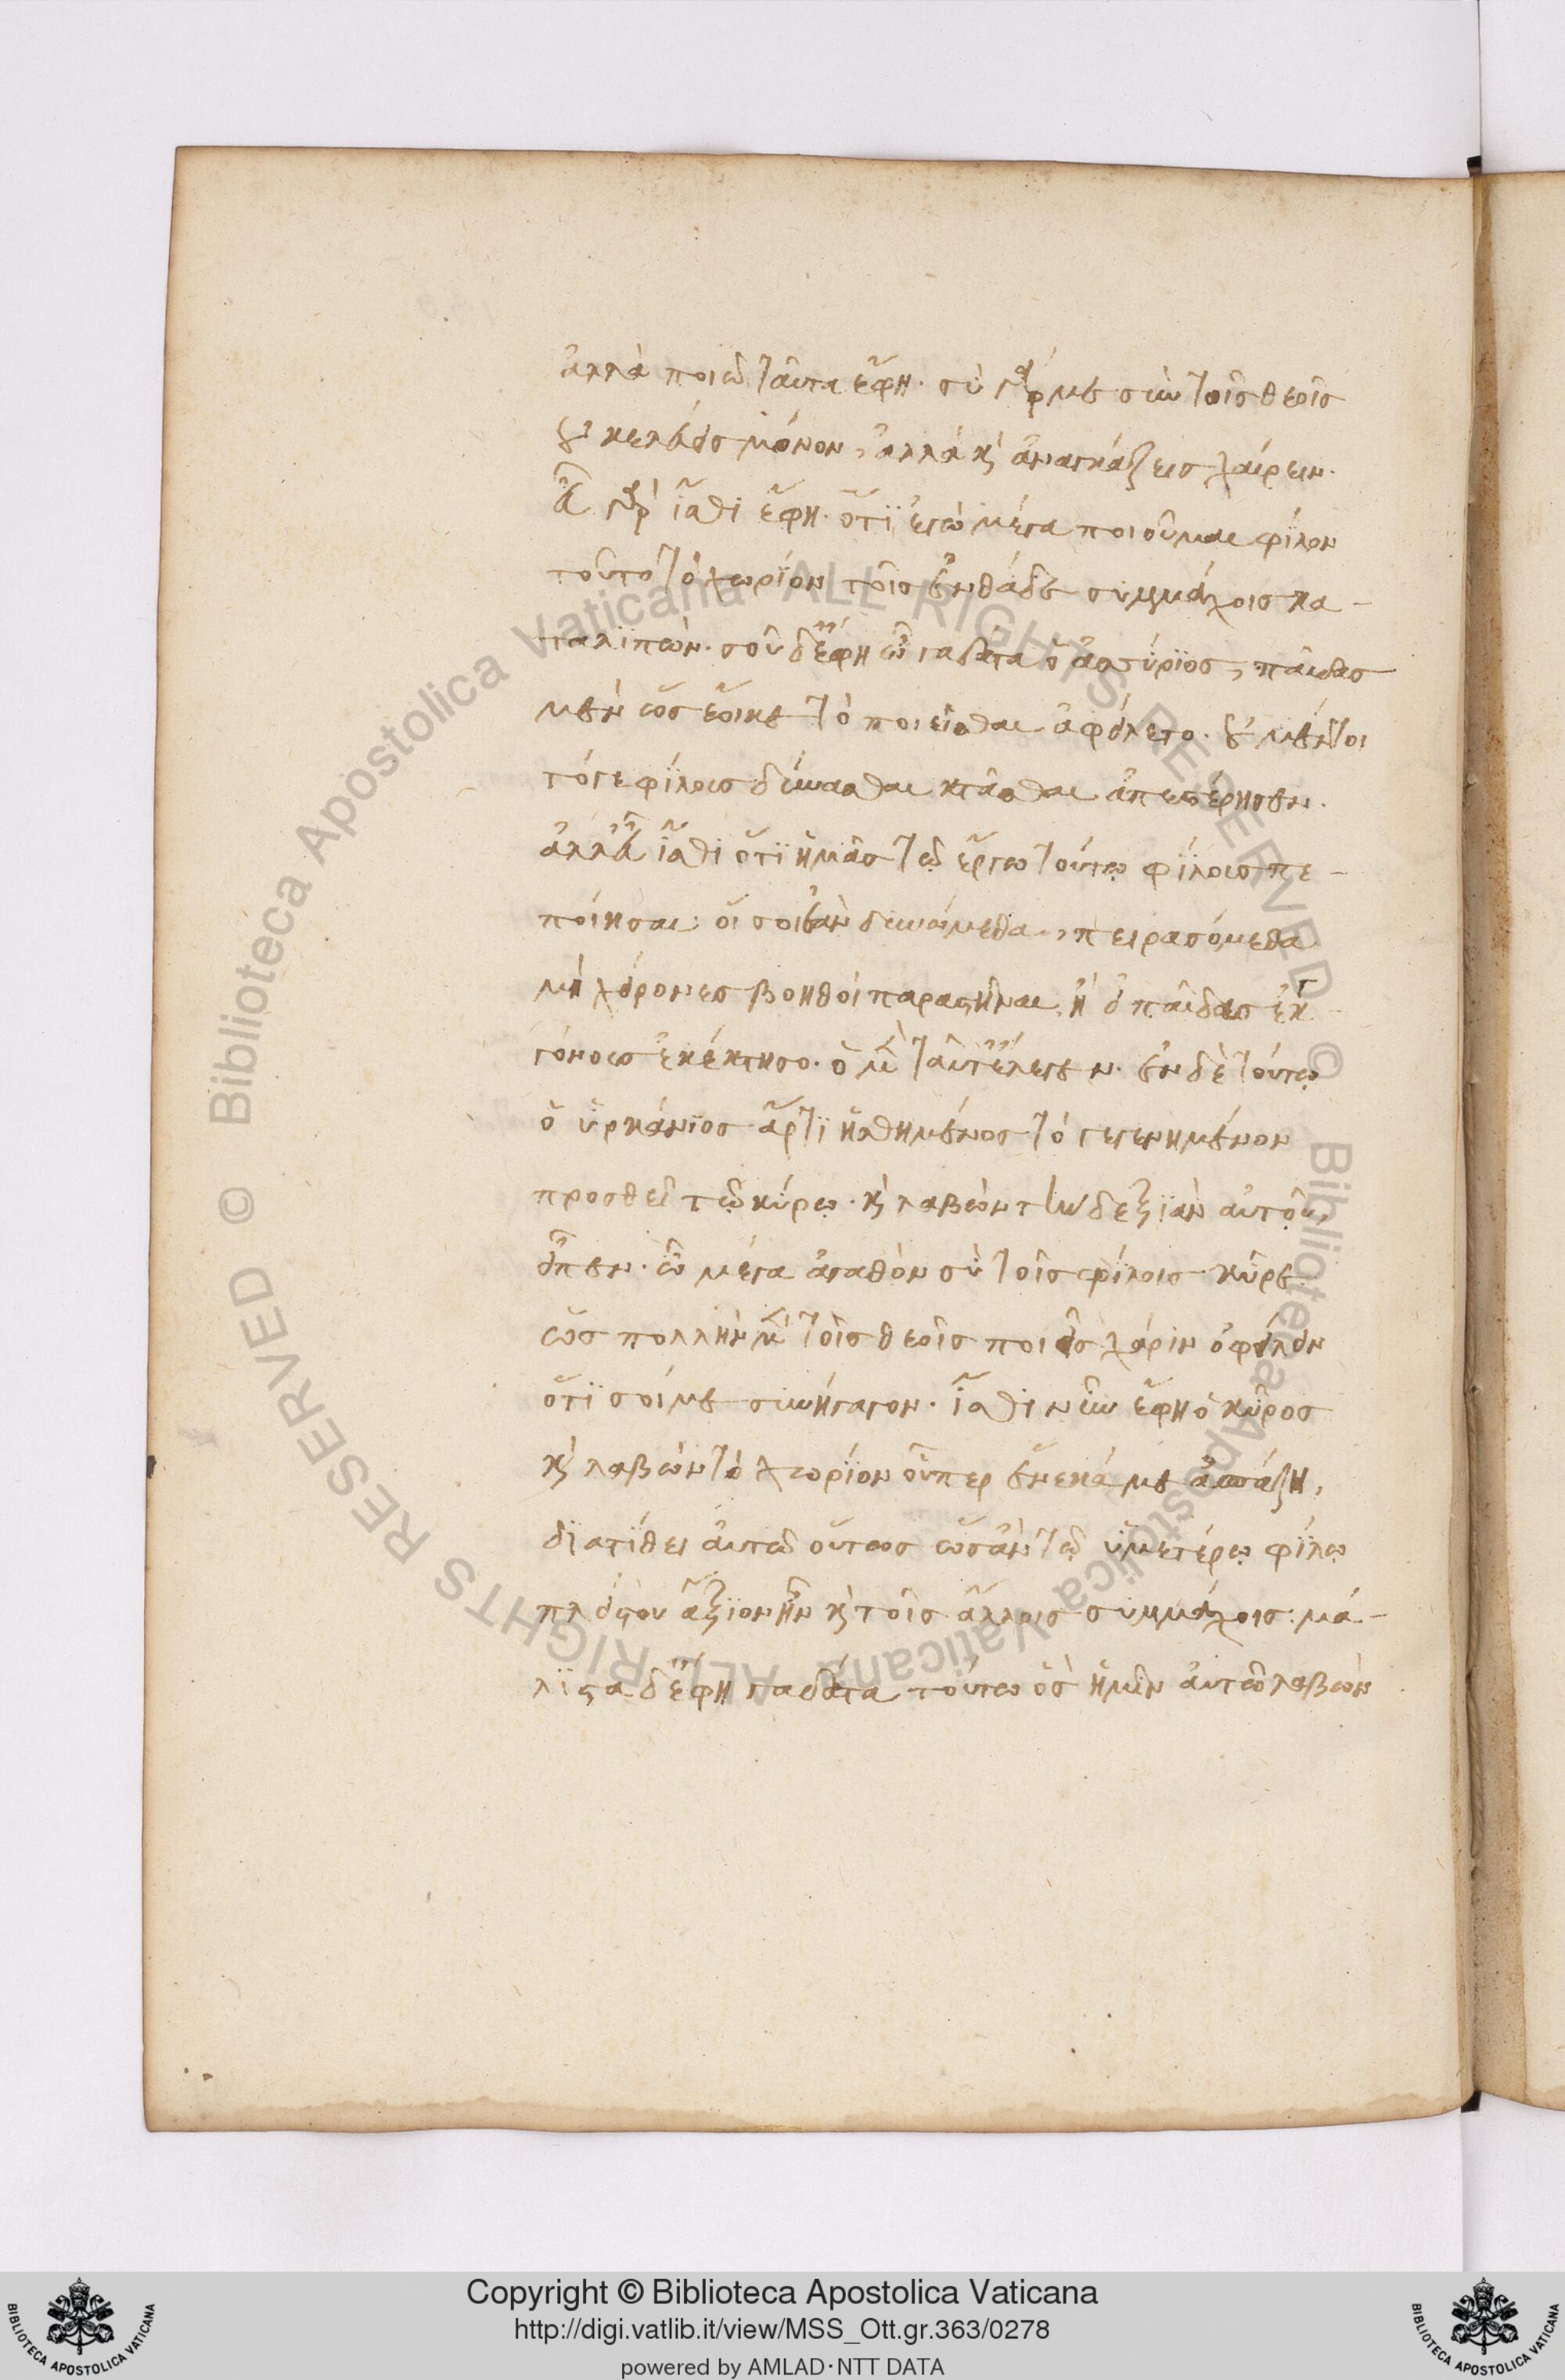 ἀλλὰ ποιῶ ταῦτα ἔφη· σὺ γάρ με σὺν τοῖς θεοῖς
οὐ κελεύεις μόνον, ἀλλὰ καὶ ἀναγκάζεις χαίρειν.
εὖ γὰρ ἴσθι ἔφη· ὅτι ἐγὼ μέγα ποιοῦμαι φίλιον
τοῦτο τὸ χωρίον τοῖς ἐνθάδε συμμάχοις κα-
ταλιπών. σοῦ δ' ἔφη ὦ γαδάτα ὁ ἀσσύριος, παῖδας
μὲν ὡς ἔοικε τὸ ποιεῖσθαι ἀφείλετο. οὐ μέντοι
τό γε φίλους δύνασθαι κτᾶσθαι ἀπεστέρησεν.
ἀλλ' εὖ ἴσθι ὅτι ἡμᾶς τῷ ἔργῳ τούτῳ φίλους πε-
ποίησαι· οἵ σοι ἐὰν δυνώμεθα, πειρασόμεθα
μὴ χείρονες βοηθοὶ παραστῆναι, ἢ εἰ παῖδας ἐκ
γόνους ἐκέκτησο. ὁ μὲν ταῦτ' ἔλεγεν. ἐν δὲ τούτῳ
ὁ ὑρκάνιος ἄρτι ᾐσθημένος τὸ γεγενημένον
προσθεῖ τῷ κύρῳ. καὶ λαβὼν τὴν δεξιὰν αὐτοῦ,
εἶπεν. ὦ μέγα ἀγαθὸν σὺ τοῖς φίλοις κῦρε.
ὡς πολλήν με τοῖς θεοῖς ποιεῖς χάριν ὀφείλειν
ὅτι σοί με συνήγαγον. ἴσθι νῦν ἔφη ὁ κῦρος
καὶ λαβὼν τὸ χωρίον οὗπερ ἕνεκά με ἀσπάζῃ,
διατίθει αὐτὸ οὕτως ὡς ἂν τῷ ὑμετέρῳ φίλῳ
πλείστου ἄξιον ἦν καὶ τοῖς ἄλλοις συμμάχοις. μά-
λιστα δ' ἔφη γαδάτα τούτω ὃς ἡμῖν αὐτὸ λαβὼν
Copyright © Biblioteca Apostolica Vaticana
http://digi.vatlib.it/view/MSS_Ott.gr.363/0278
powered by AMLAD·NTT DATA